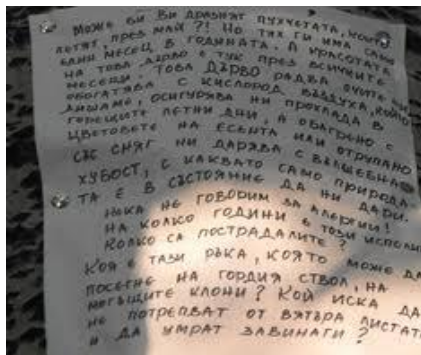 МОЖЕ БИ ВИ ДРАЗНЯТ ПУХЧЕТАТА, КОИТО
ЛЕТЯТ, ПРЕЗ МАЙ?! НО ТЯХ ГИ ИМА САМО
ЕДИН МЕСЕЦ В ГОДИНАТА. А КРАСОТАТА
НА ТОВА ДЪРВО Е ТУК ПРЕЗ ВСИЧКИТЕ
МЕСЕЦИ. ТОВА ДЪРВО РАДВА ОЧИТЕ НИ
ОБОГАТЯВА С КИСЛОРОД ВЪЗДУХА, КОЙТО
ДИШАМЕ, ОСИГУРЯВА НИ ПРОХЛАДА В
ГОРЕЩИТЕ ЛЕТНИ ДНИ, А ОБАГРЕНО С
ЦВЕТОВЕТЕ НА ЕСЕНТА ИЛИ ОТРУПАНО
СЪС СНЯГ НИ ДАРЯВА С ВЪЛШЕБНА
ХУБОСТ, С КАКВАТО САМО ПРИРОДА
ТА Е В СЪСТОЯНИЕ ДА НИ ДАРИ.
НЕКА НЕ ГОВОРИМ ЗА АЛЕРГИИ!
НА КОЛКО ГОДИНИ Е ТОЗИ ИСПОЛИН
КОЛКО СА ПОСТРАДАЛИТЕ?
КОЯ Е ТАЗИ РЪКА, КОЯТО МОЖЕ ДА
ПОСЕГНЕ НА ГОРДИЯ СТВОЛ, НА
МОГЪЩИТЕ КЛОНИ? КОЙ ИСКА ДА
НЕ ПОТРЕПВАТ ОТ ВЯТЪРА ЛИСТАТА
И ДА УМРАТ ЗАВИНАГИ?